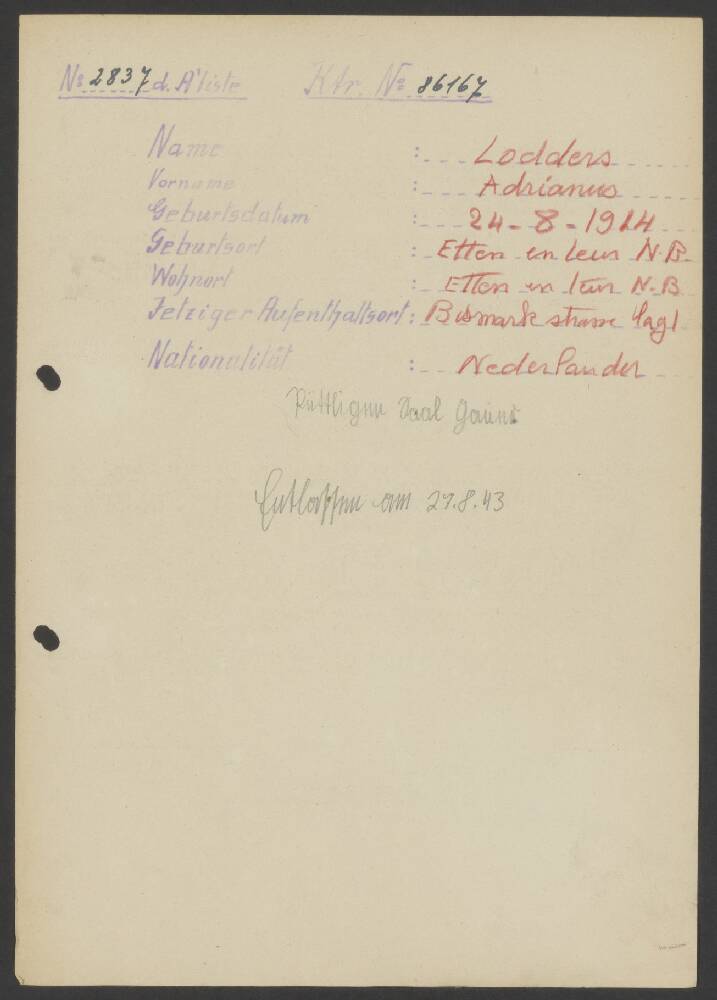 No 2837 d. A'liste Ktr. No 86167
Name : Lodders
Vorname : Adrianus
Geburtsdatum : 24-8-1914
Geburtsort : Etten en Leur N.B.
Wohnort : Etten en Leur N.B
Jetziger Aufenthaltsort : Bismark strasse lag
Nationalität : Nederlander
Püttlingen Saal
Entlassen am 29.8.43